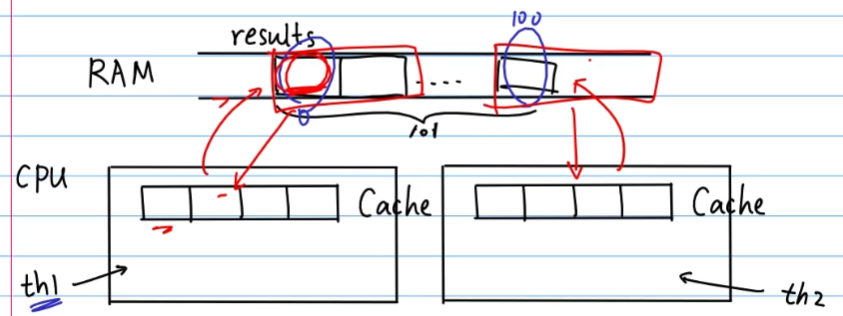 results
100
RAM
....
0
101
CPU
Cache
Cache
th1
th2